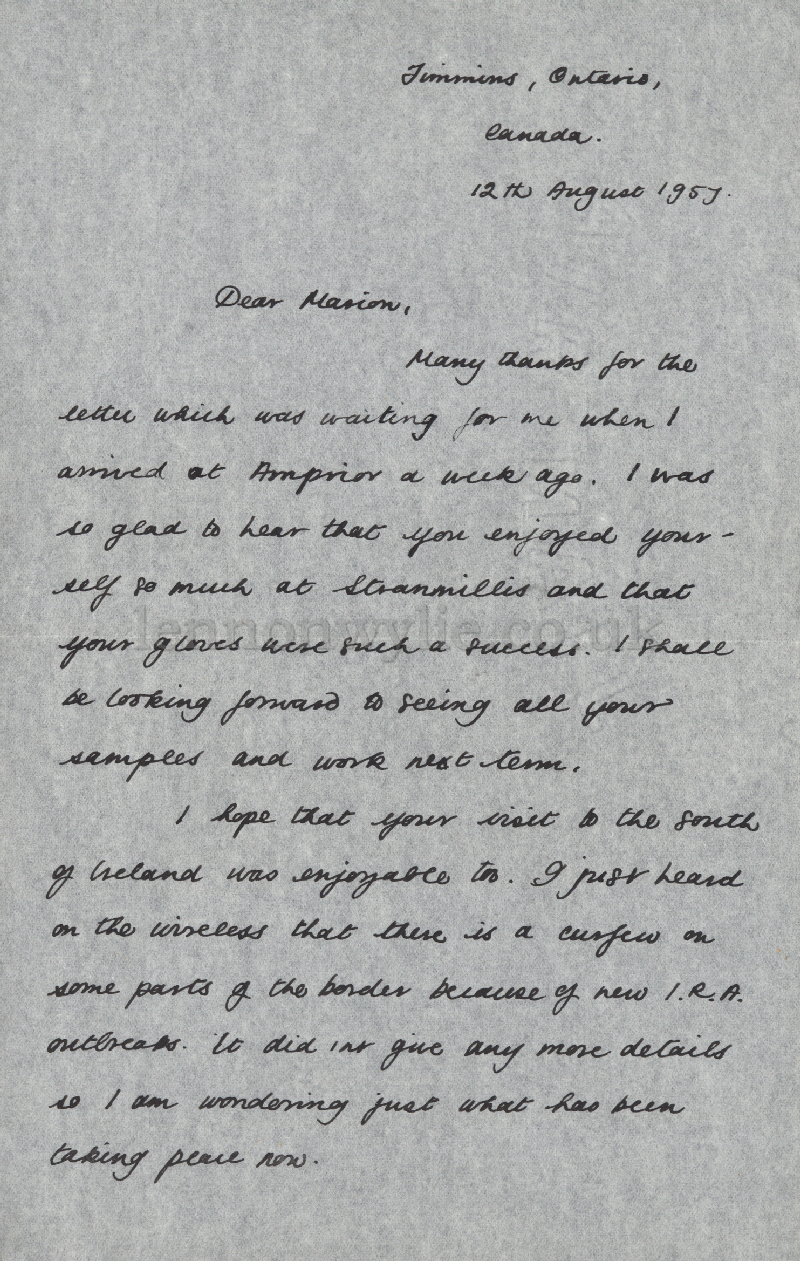 Timmins, Ontario,
Canada.
12th August 1957.
Dear Marion,
Many thanks for the
letter which was waiting for me when I
arrived at Arnprior a week ago. I was
so glad to hear that you enjoyed your-
self so much at Stranmillis and that
lennonwylie.co.uk
your gloves were such a success. I shall
be looking forward to seeing all your
samples and work next term.
I hope that your visit to the South
of Ireland was enjoyable too. I just heard
on the wireless that there is a curfew on
some parts of the border because of new I.R.A.
outbreaks. It did not give any more details
so I am wondering just what has been
taking place now.